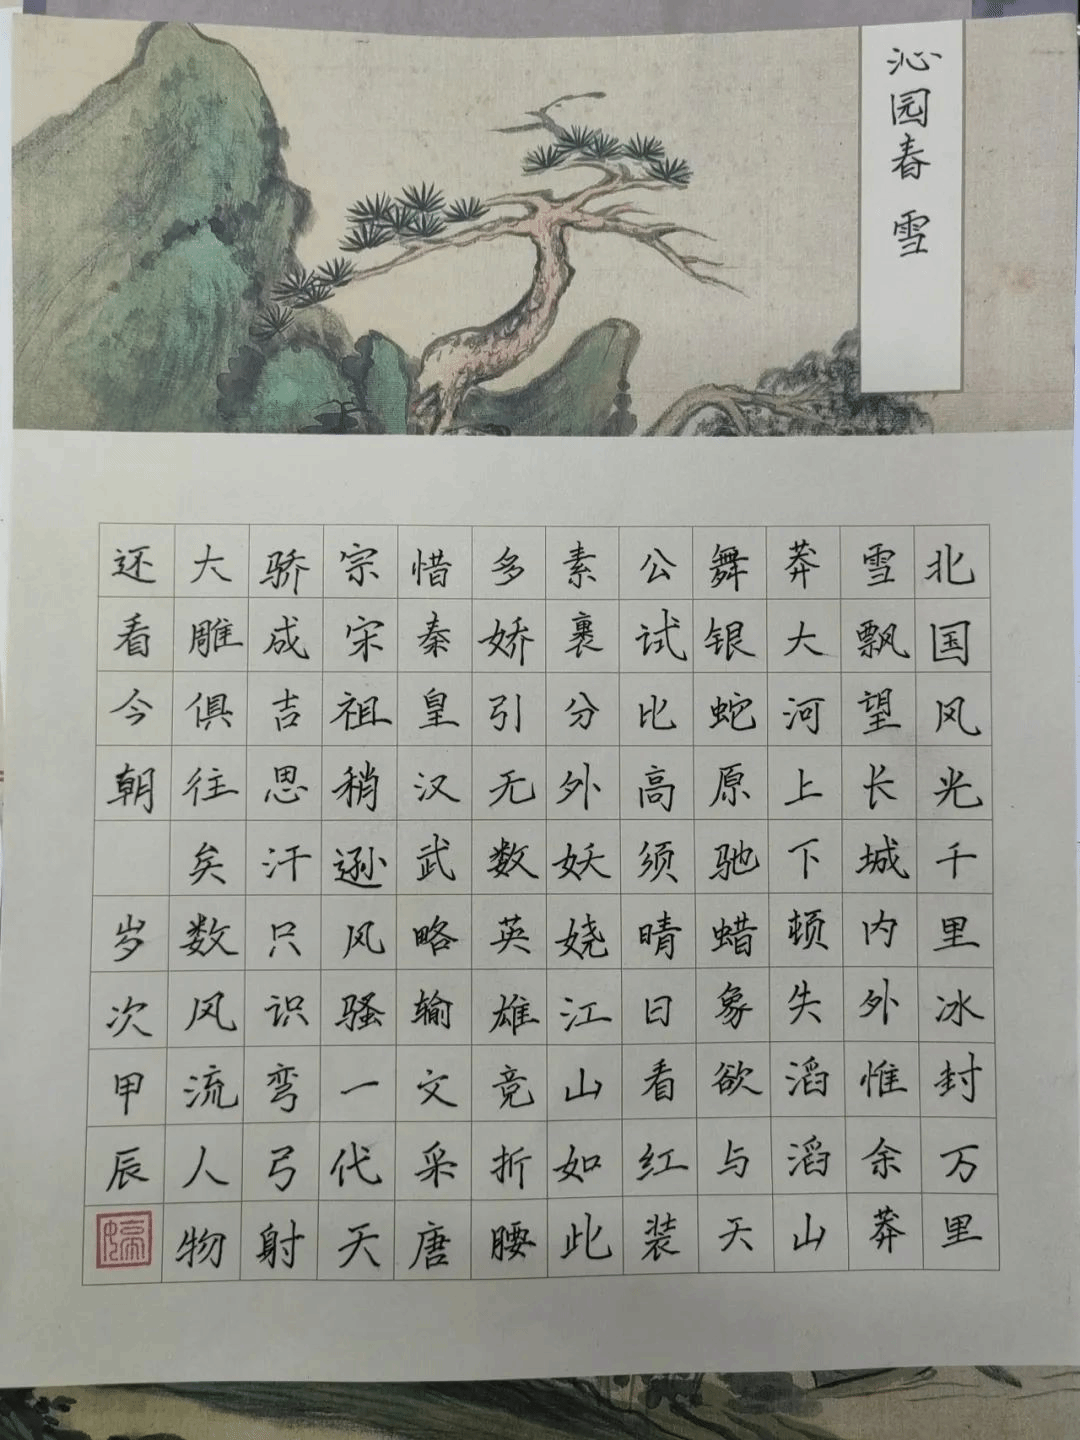 沁园春 雪
北国风光千里冰封万里
雪飘望长城内外惟余莽
莽大河上下顿失滔滔山
舞银蛇原驰蜡象欲与天
公试比高须晴日看红装
素裹分外妖娆江山如此
多娇引无数英雄竞折腰
惜秦皇汉武略输文采唐
宗宋祖稍逊风骚一代天
骄成吉思汗只识弯弓射
大雕俱往矣数风流人物
还看今朝 岁次甲辰